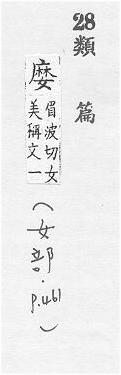 28
類篇
眉波切女
美稱文一
(女部．p.461)